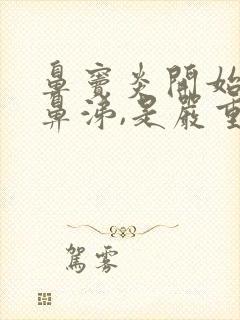 鼻竇炎開始
鼻涕,是嚴重
駕霧